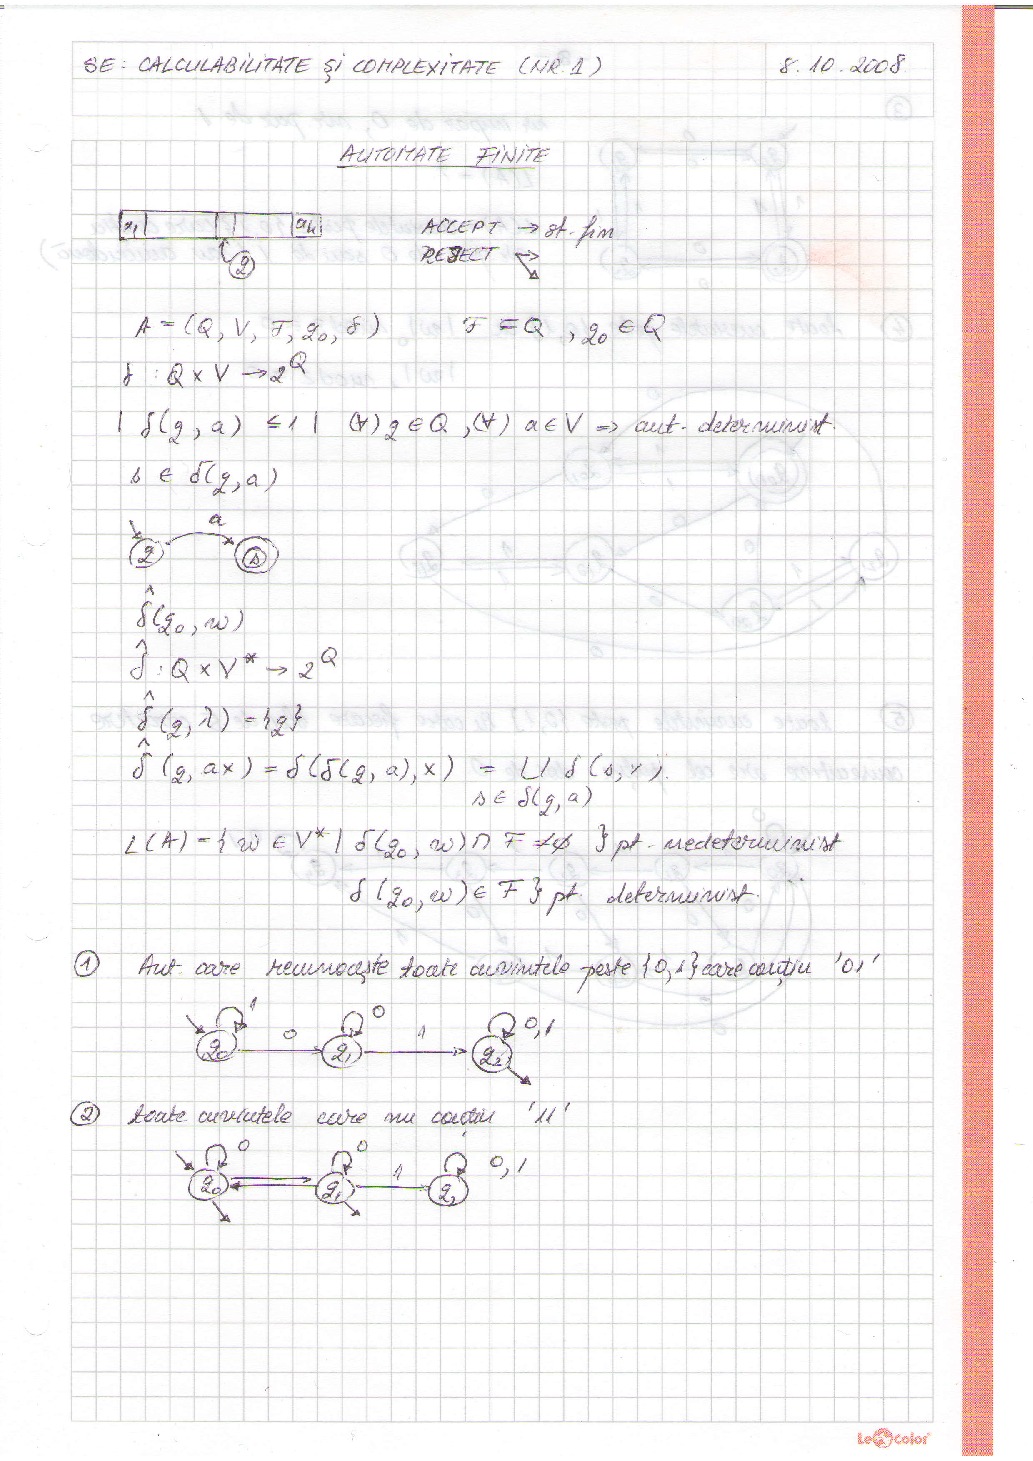 SE: CALCULABILITATE ŞI COMPLEXITATE (NR. 1) 8.10.2008
AUTOMATE FINITE
a₁ aₙ ACCEPT → st. fin
q REJECT →
A = (Q, V, F, q₀, δ) F = Q, q₀ ∈ Q
δ : Q × V → 2^Q
| δ(q, a) ≤ 1 | (∀) q ∈ Q, (∀) a ∈ V => aut. determinist.
s ∈ δ(q, a)
a
q s
δ̂(q₀, w)
δ̂ : Q × V* → 2^Q
δ̂ (q, λ) = {q}
δ̂ (q, ax) = δ(δ(q, a), x) = ∪ δ (s, x).
s ∈ δ(q, a)
L(A) = { w ∈ V* | δ(q₀, w) ∩ F ≠ ∅ } pt. nedeterminist
δ (q₀, w) ∈ F } pt. determinist.
① Aut. care recunoaşte toate cuvintele peste {0,1} care conţin '01'
1 0 0 1 0,1
q₀ q₁ q₂
② toate cuvintele care nu conţin '11'
0 0 1 0,1
q₀ q₁ q₂
LeColor